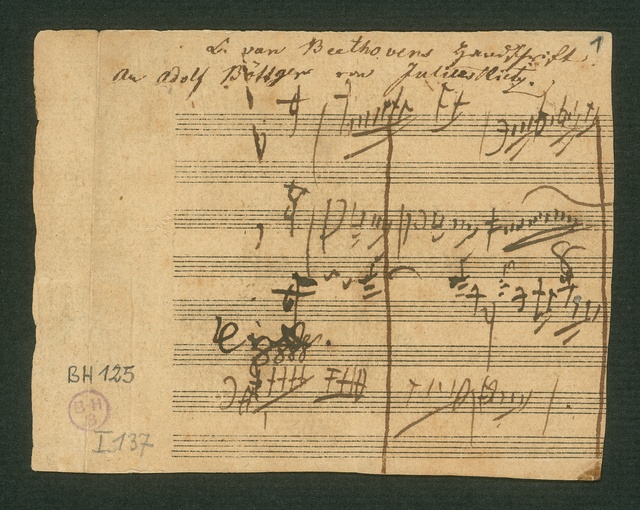 L. van Beethovens Handschrift.
1
An Adolf Böttger von Julius Rietz.
BH 125
B H
B
I 137